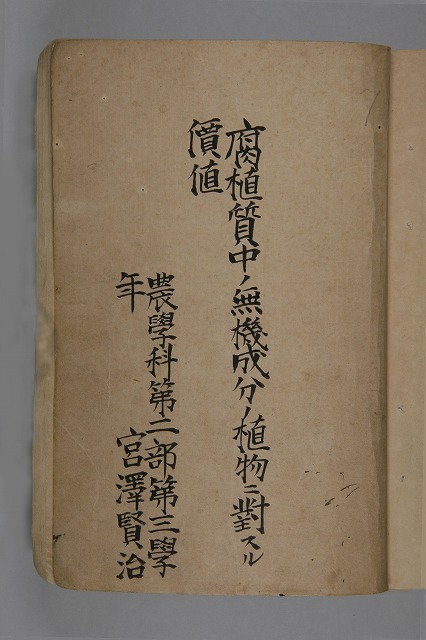 腐植質中ノ無機成分ノ植物ニ對スル
價値
農學科第二部第三學
年
宮澤賢治